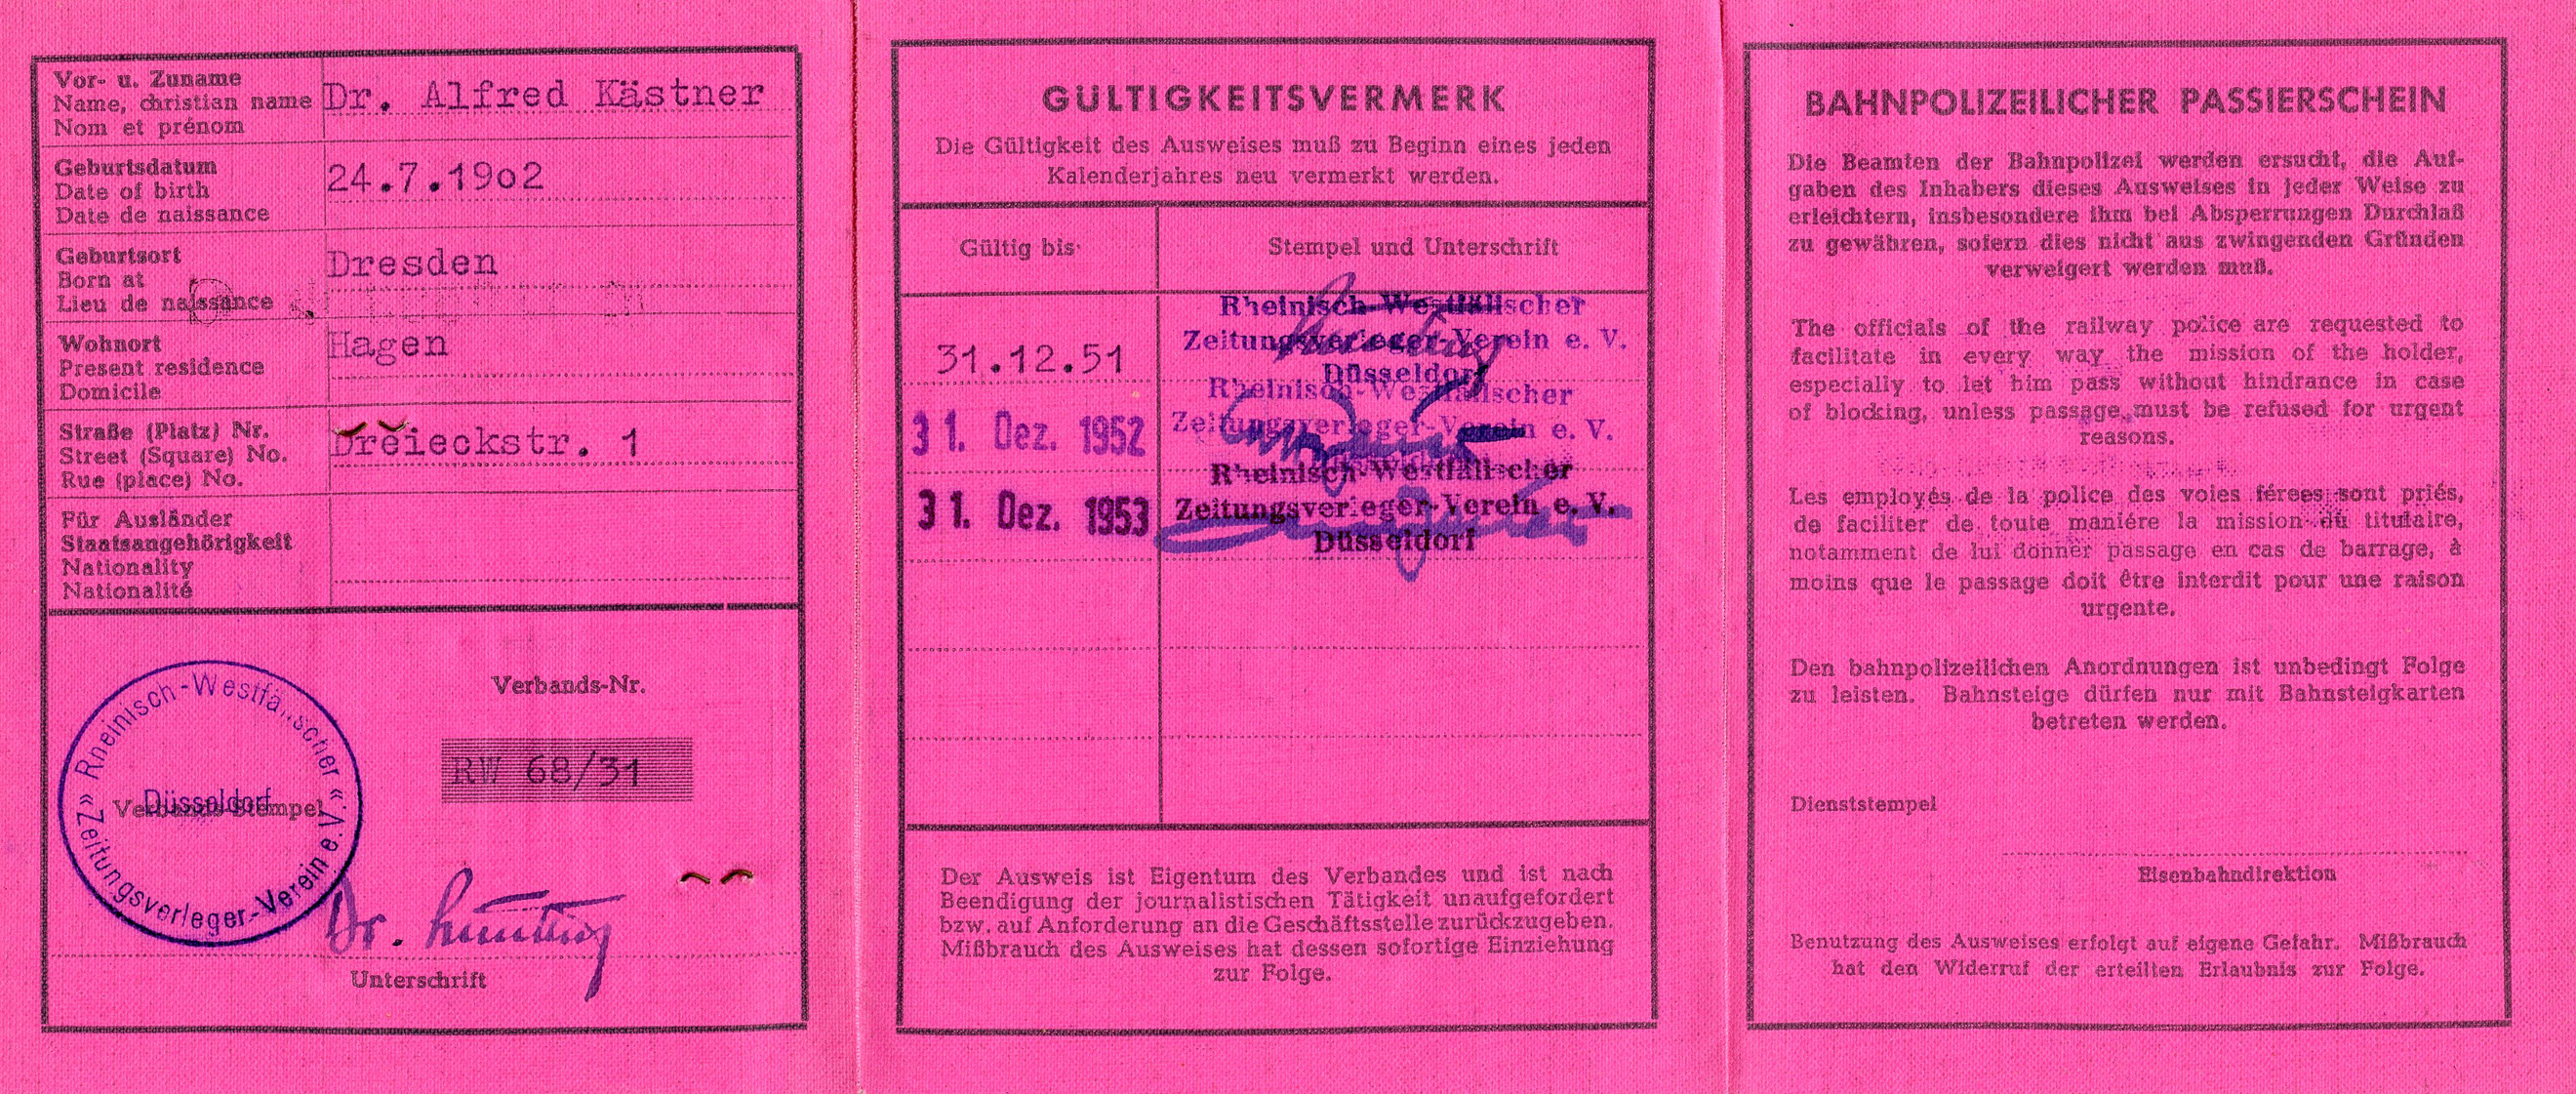 Vor- u. Zuname
Name, christian name
Nom et prénom
Dr. Alfred Kästner
Geburtsdatum
Date of birth
Date de naissance
24.7.19o2
Geburtsort
Born at
Lieu de naissance
Dresden
Wohnort
Present residence
Domicile
Hagen
Straße (Platz) Nr.
Street (Square) No.
Rue (place) No.
Dreieckstr. 1
Für Ausländer
Staatsangehörigkeit
Nationality
Nationalité
Verbands-Nr.
RW 68/31
» Rheinisch-Westfälischer «
Zeitungsverleger-Verein e.V.
Düsseldorf
Verbands-Stempel
Dr.
Unterschrift
GÜLTIGKEITSVERMERK
Die Gültigkeit des Ausweises muß zu Beginn eines jeden
Kalenderjahres neu vermerkt werden.
Gültig bis
Stempel und Unterschrift
31.12.51
Rheinisch-Westfälischer
Zeitungsverleger-Verein e. V.
Düsseldorf
31. Dez. 1952
Rheinisch-Westfälischer
Zeitungsverleger-Verein e. V.
31. Dez. 1953
Rheinisch-Westfälischer
Zeitungsverleger-Verein e. V.
Düsseldorf
Der Ausweis ist Eigentum des Verbandes und ist nach
Beendigung der journalistischen Tätigkeit unaufgefordert
bzw. auf Anforderung an die Geschäftsstelle zurückzugeben.
Mißbrauch des Ausweises hat dessen sofortige Einziehung
zur Folge.
BAHNPOLIZEILICHER PASSIERSCHEIN
Die Beamten der Bahnpolizei werden ersucht, die Auf-
gaben des Inhabers dieses Ausweises in jeder Weise zu
erleichtern, insbesondere ihm bei Absperrungen Durchlaß
zu gewähren, sofern dies nicht aus zwingenden Gründen
verweigert werden muß.
The officials of the railway police are requested to
facilitate in every way the mission of the holder,
especially to let him pass without hindrance in case
of blocking, unless passage must be refused for urgent
reasons.
Les employés de la police des voies férees sont priés,
de faciliter de toute maniére la mission du titulaire,
notamment de lui donner passage en cas de barrage, à
moins que le passage doit être interdit pour une raison
urgente.
Den bahnpolizeilichen Anordnungen ist unbedingt Folge
zu leisten. Bahnsteige dürfen nur mit Bahnsteigkarten
betreten werden.
Dienststempel
Eisenbahndirektion
Benutzung des Ausweises erfolgt auf eigene Gefahr. Mißbrauch
hat den Widerruf der erteilten Erlaubnis zur Folge.